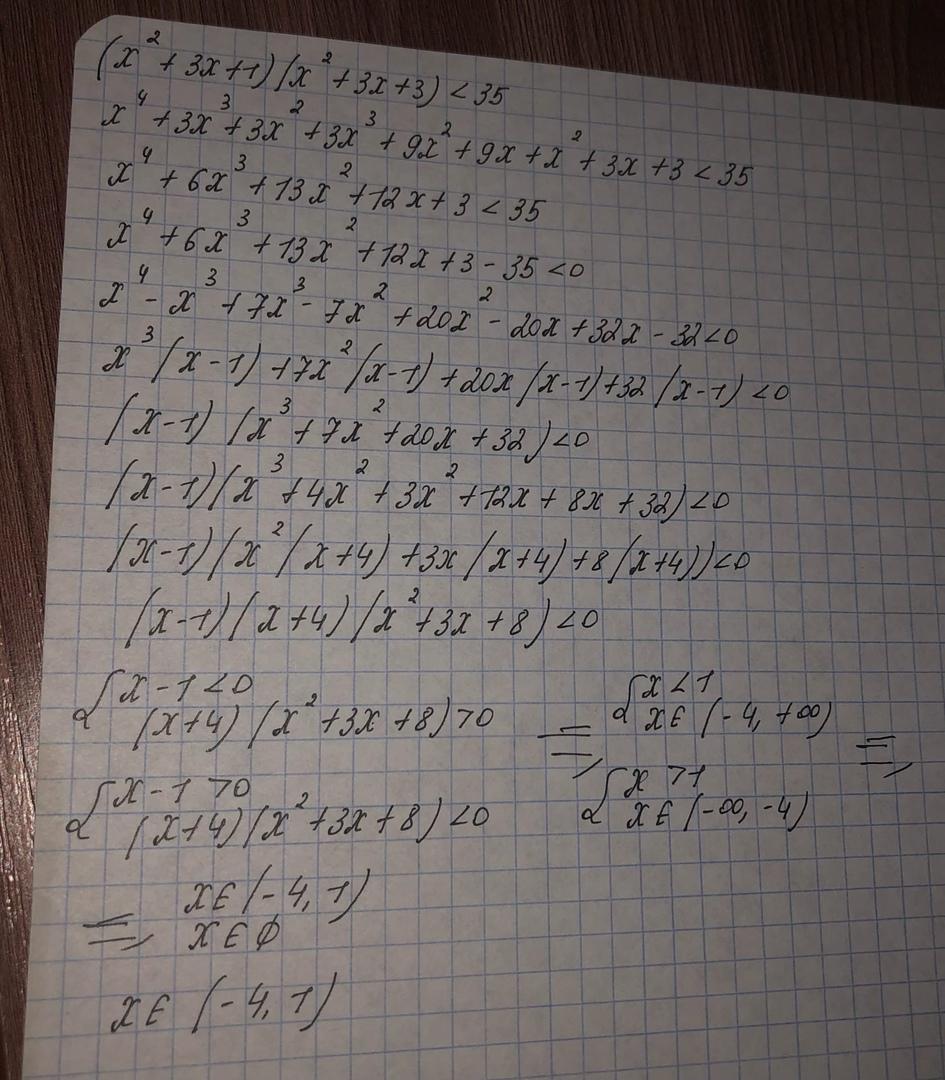 (x² + 3x + 1) (x² + 3x + 3) < 35
x⁴ + 3x³ + 3x² + 3x³ + 9x² + 9x + x² + 3x + 3 < 35
x⁴ + 6x³ + 13x² + 12x + 3 < 35
x⁴ + 6x³ + 13x² + 12x + 3 - 35 < 0
x⁴ - x³ + 7x³ - 7x² + 20x² - 20x + 32x - 32 < 0
x³ (x - 1) + 7x² (x - 1) + 20x (x - 1) + 32 (x - 1) < 0
(x - 1) (x³ + 7x² + 20x + 32) < 0
(x - 1) (x³ + 4x² + 3x² + 12x + 8x + 32) < 0
(x - 1) (x² (x + 4) + 3x (x + 4) + 8 (x + 4)) < 0
(x - 1) (x + 4) (x² + 3x + 8) < 0
{ x - 1 < 0
(x + 4) (x² + 3x + 8) > 0
{ x - 1 > 0
(x + 4) (x² + 3x + 8) < 0
=>
{ x < 1
x ∈ (-4, +∞)
{ x > 1
x ∈ (-∞, -4)
=>
=> x ∈ (-4, 1)
x ∈ ϕ
x ∈ (-4, 1)